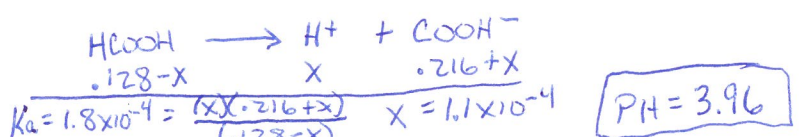 HCOOH → H+ + COOH⁻
.128-X X .216+X
Ka = 1.8x10⁻⁴ = (X)(.216+X) / (.128-X) X = 1.1x10⁻⁴ PH = 3.96